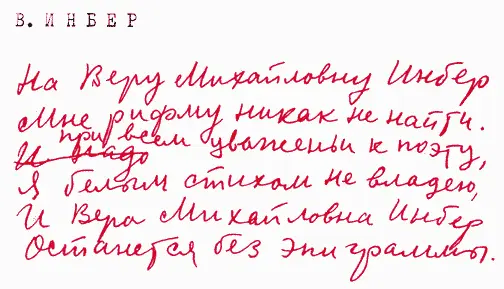 В. ИНБЕР
На Веру Михайловну Инбер
Мне рифму никак не найти.
И надо
при всем уваженьи к поэту,
Я белым стихом не владею,
И Вера Михайловна Инбер
Останется без эпиграммы.